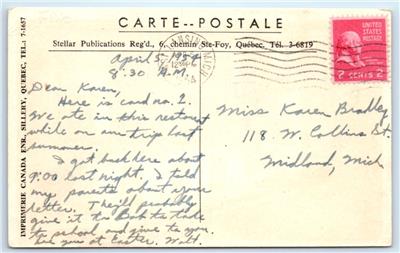 CARTE--POSTALE
Stellar Publications Reg'd., 6, chemin Ste-Foy, Québec. Tél. 3-6819
IMPRIMERIE CANADA ENR., SILLERY, QUEBEC, TEL.: 7-1657
UNITED STATES
POSTAGE
2 CENTS 2
LANSING MICH
April 5, 1954
8:30 A.M.
Dear Karen,
Here is card no. 2.
We ate in this restaurant
while on our trip last
summer.
I got back here about
9:00 last night. I told
my parents about your
letter. They'll probably
give it to Bob to take
to school and give to you.
See you at Easter. Walt.
Miss Karen Bradley
118 W. Collins St.
Midland, Mich